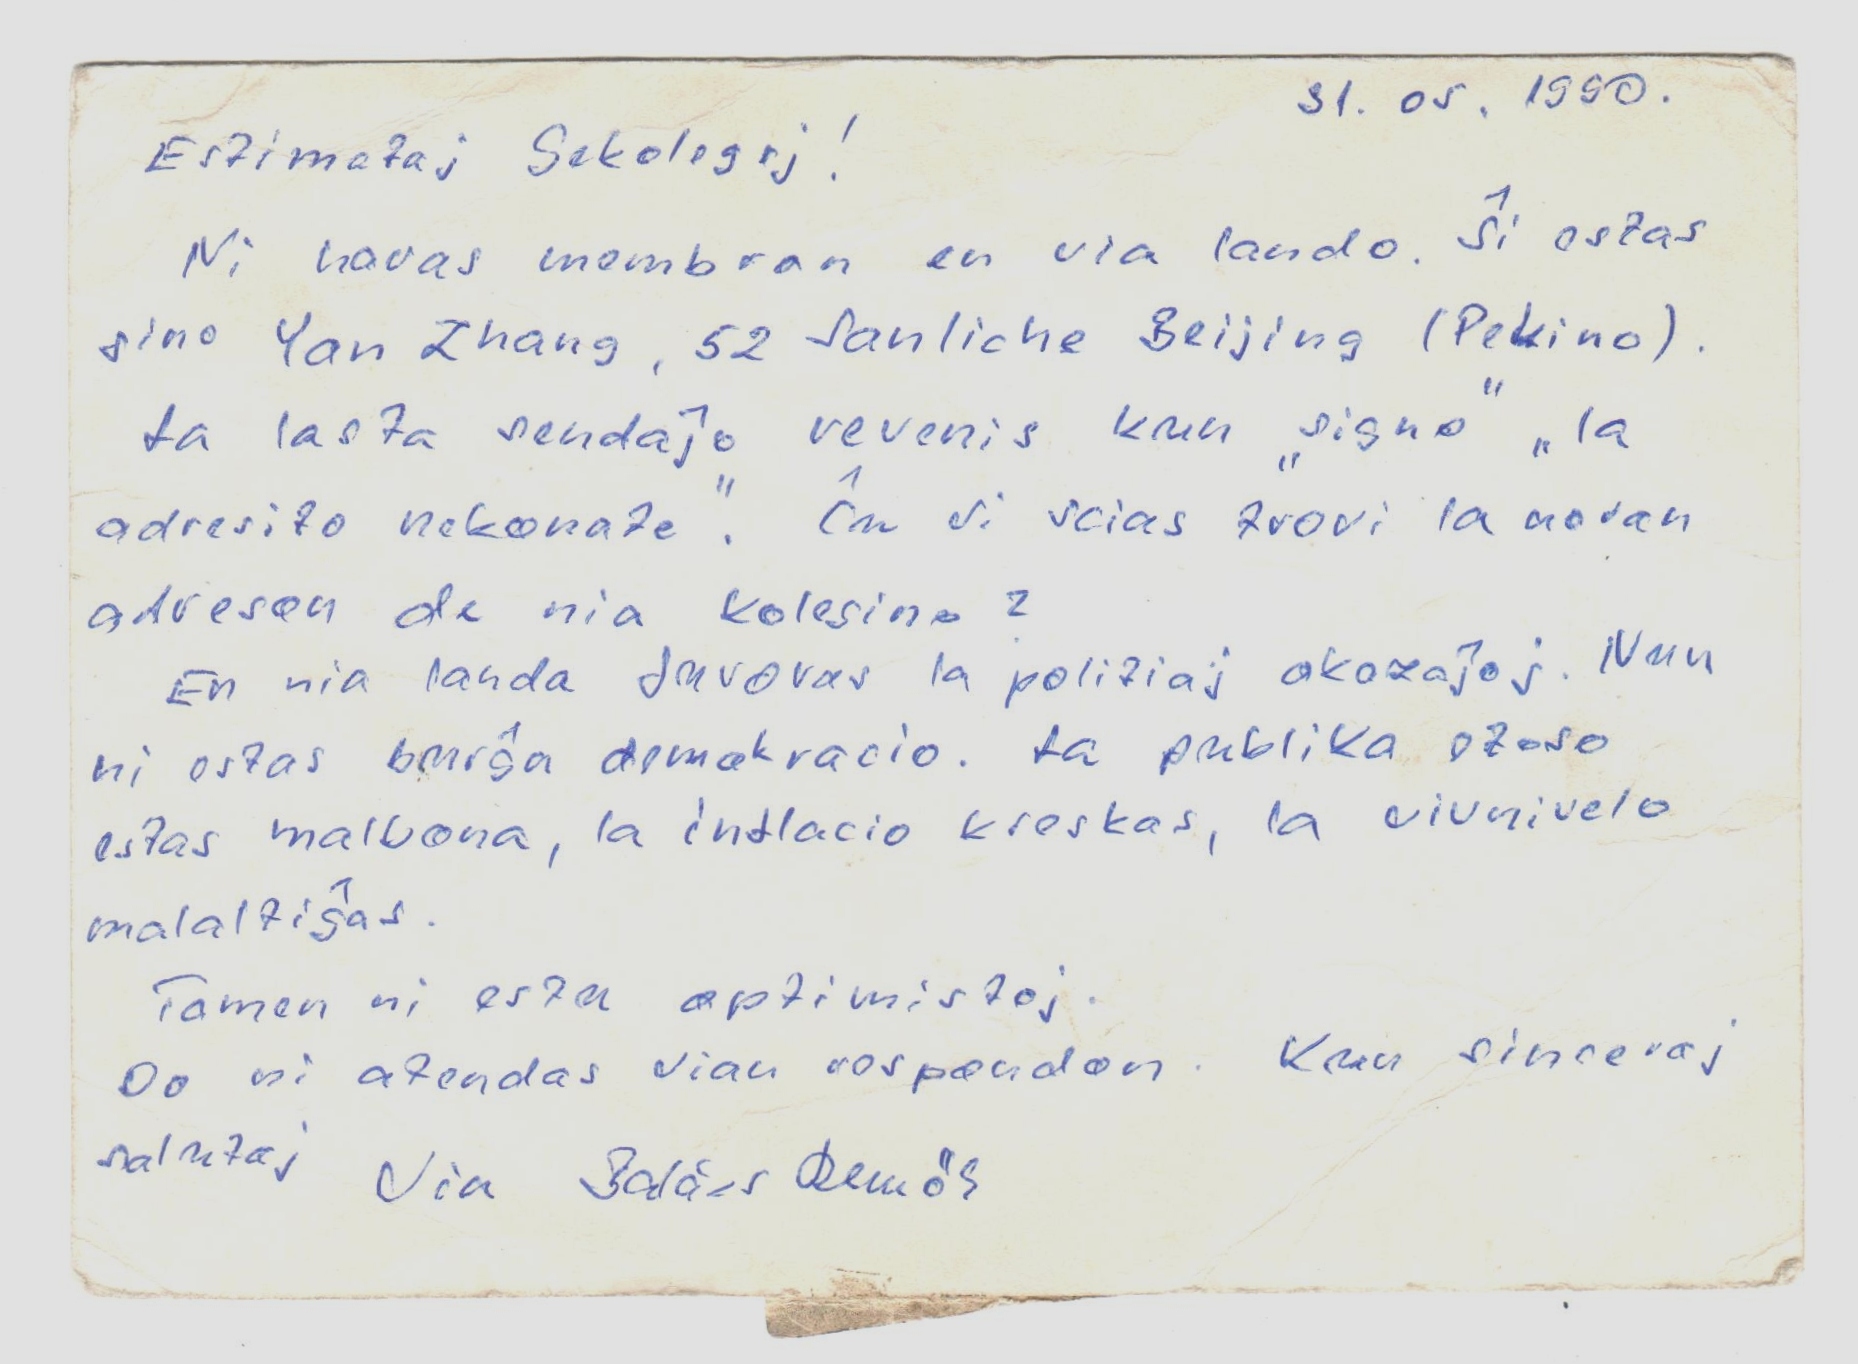 31. 05. 1990.
Estimataj Gekolegoj!
Ni havas membron en via lando. Ŝi estas
sino Yan Zhang, 52 Sanliche Beijing (Pekino).
La lasta sendaĵo revenis kun „signo" „la
adresito nekonate". Ĉu vi scias trovi la novan
adreson de nia kolegino?
En nia landa furoras la politiaj okazaĵoj. Nun
ni estas burĝa demokracio. La publika etoso
estas malbona, la inflacio kreskas, la vivnivelo
malaltiĝas.
Tamen ni estu optimistoj.
Do ni atendas vian respondon. Kun sinceraj
salutaj Via Balázs